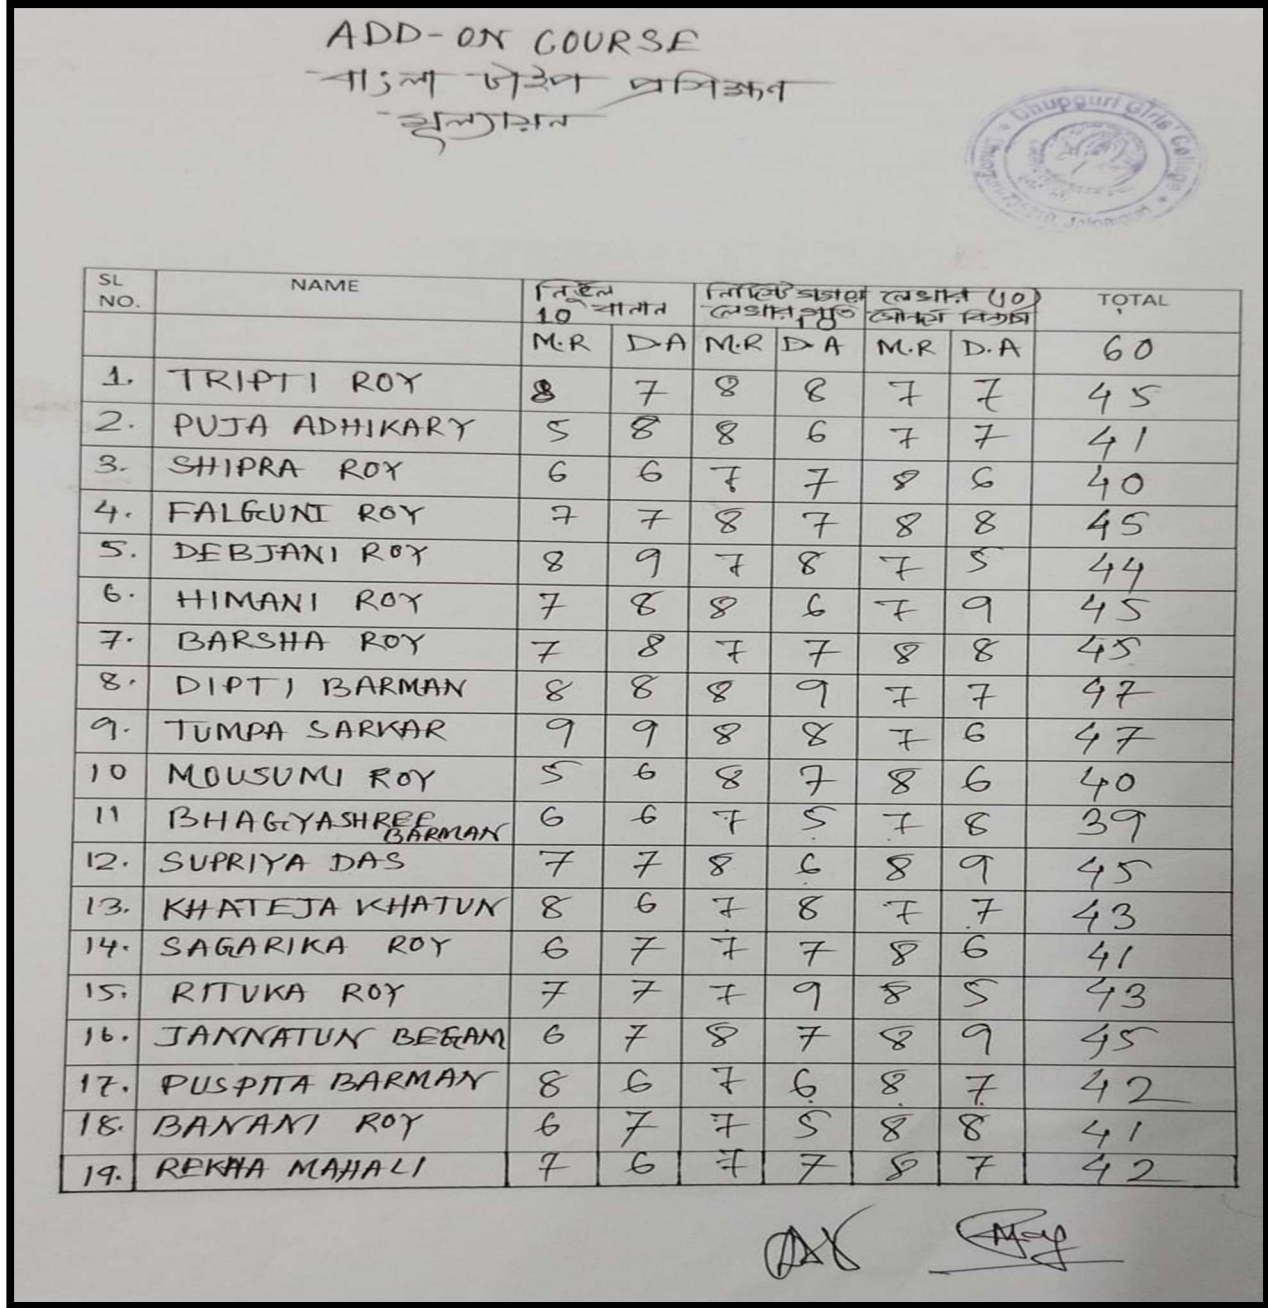 ADD-ON COURSE
বাংলা টাইপ প্রশিক্ষণ
মূল্যায়ন
Dhupguri Girls' College
SL NO. NAME নির্ভুল বানান 10 লেআউট 10 TOTAL
M.R D.A M.R D.A M.R D.A 60
1. TRIPTI ROY 8 7 8 8 7 7 45
2. PUJA ADHIKARY 5 8 8 6 7 7 41
3. SHIPRA ROY 6 6 7 7 8 6 40
4. FALGUNI ROY 7 7 8 7 8 8 45
5. DEBJANI ROY 8 9 7 8 7 5 44
6. HIMANI ROY 7 8 8 6 7 9 45
7. BARSHA ROY 7 8 7 7 8 8 45
8. DIPTI BARMAN 8 8 8 9 7 7 47
9. TUMPA SARKAR 9 9 8 8 7 6 47
10 MOUSUMI ROY 5 6 8 7 8 6 40
11 BHAGYASHREE BARMAN 6 6 7 5 7 8 39
12. SUPRIYA DAS 7 7 8 6 8 9 45
13. KHATEJA KHATUN 8 6 7 8 7 7 43
14. SAGARIKA ROY 6 7 7 7 8 6 41
15. RITUKA ROY 7 7 7 9 8 5 43
16. JANNATUN BEGAM 6 7 8 7 8 9 45
17. PUSPITA BARMAN 8 6 7 6 8 7 42
18. BANANI ROY 6 7 7 5 8 8 41
19. REKHA MAHALI 7 6 7 7 8 7 42